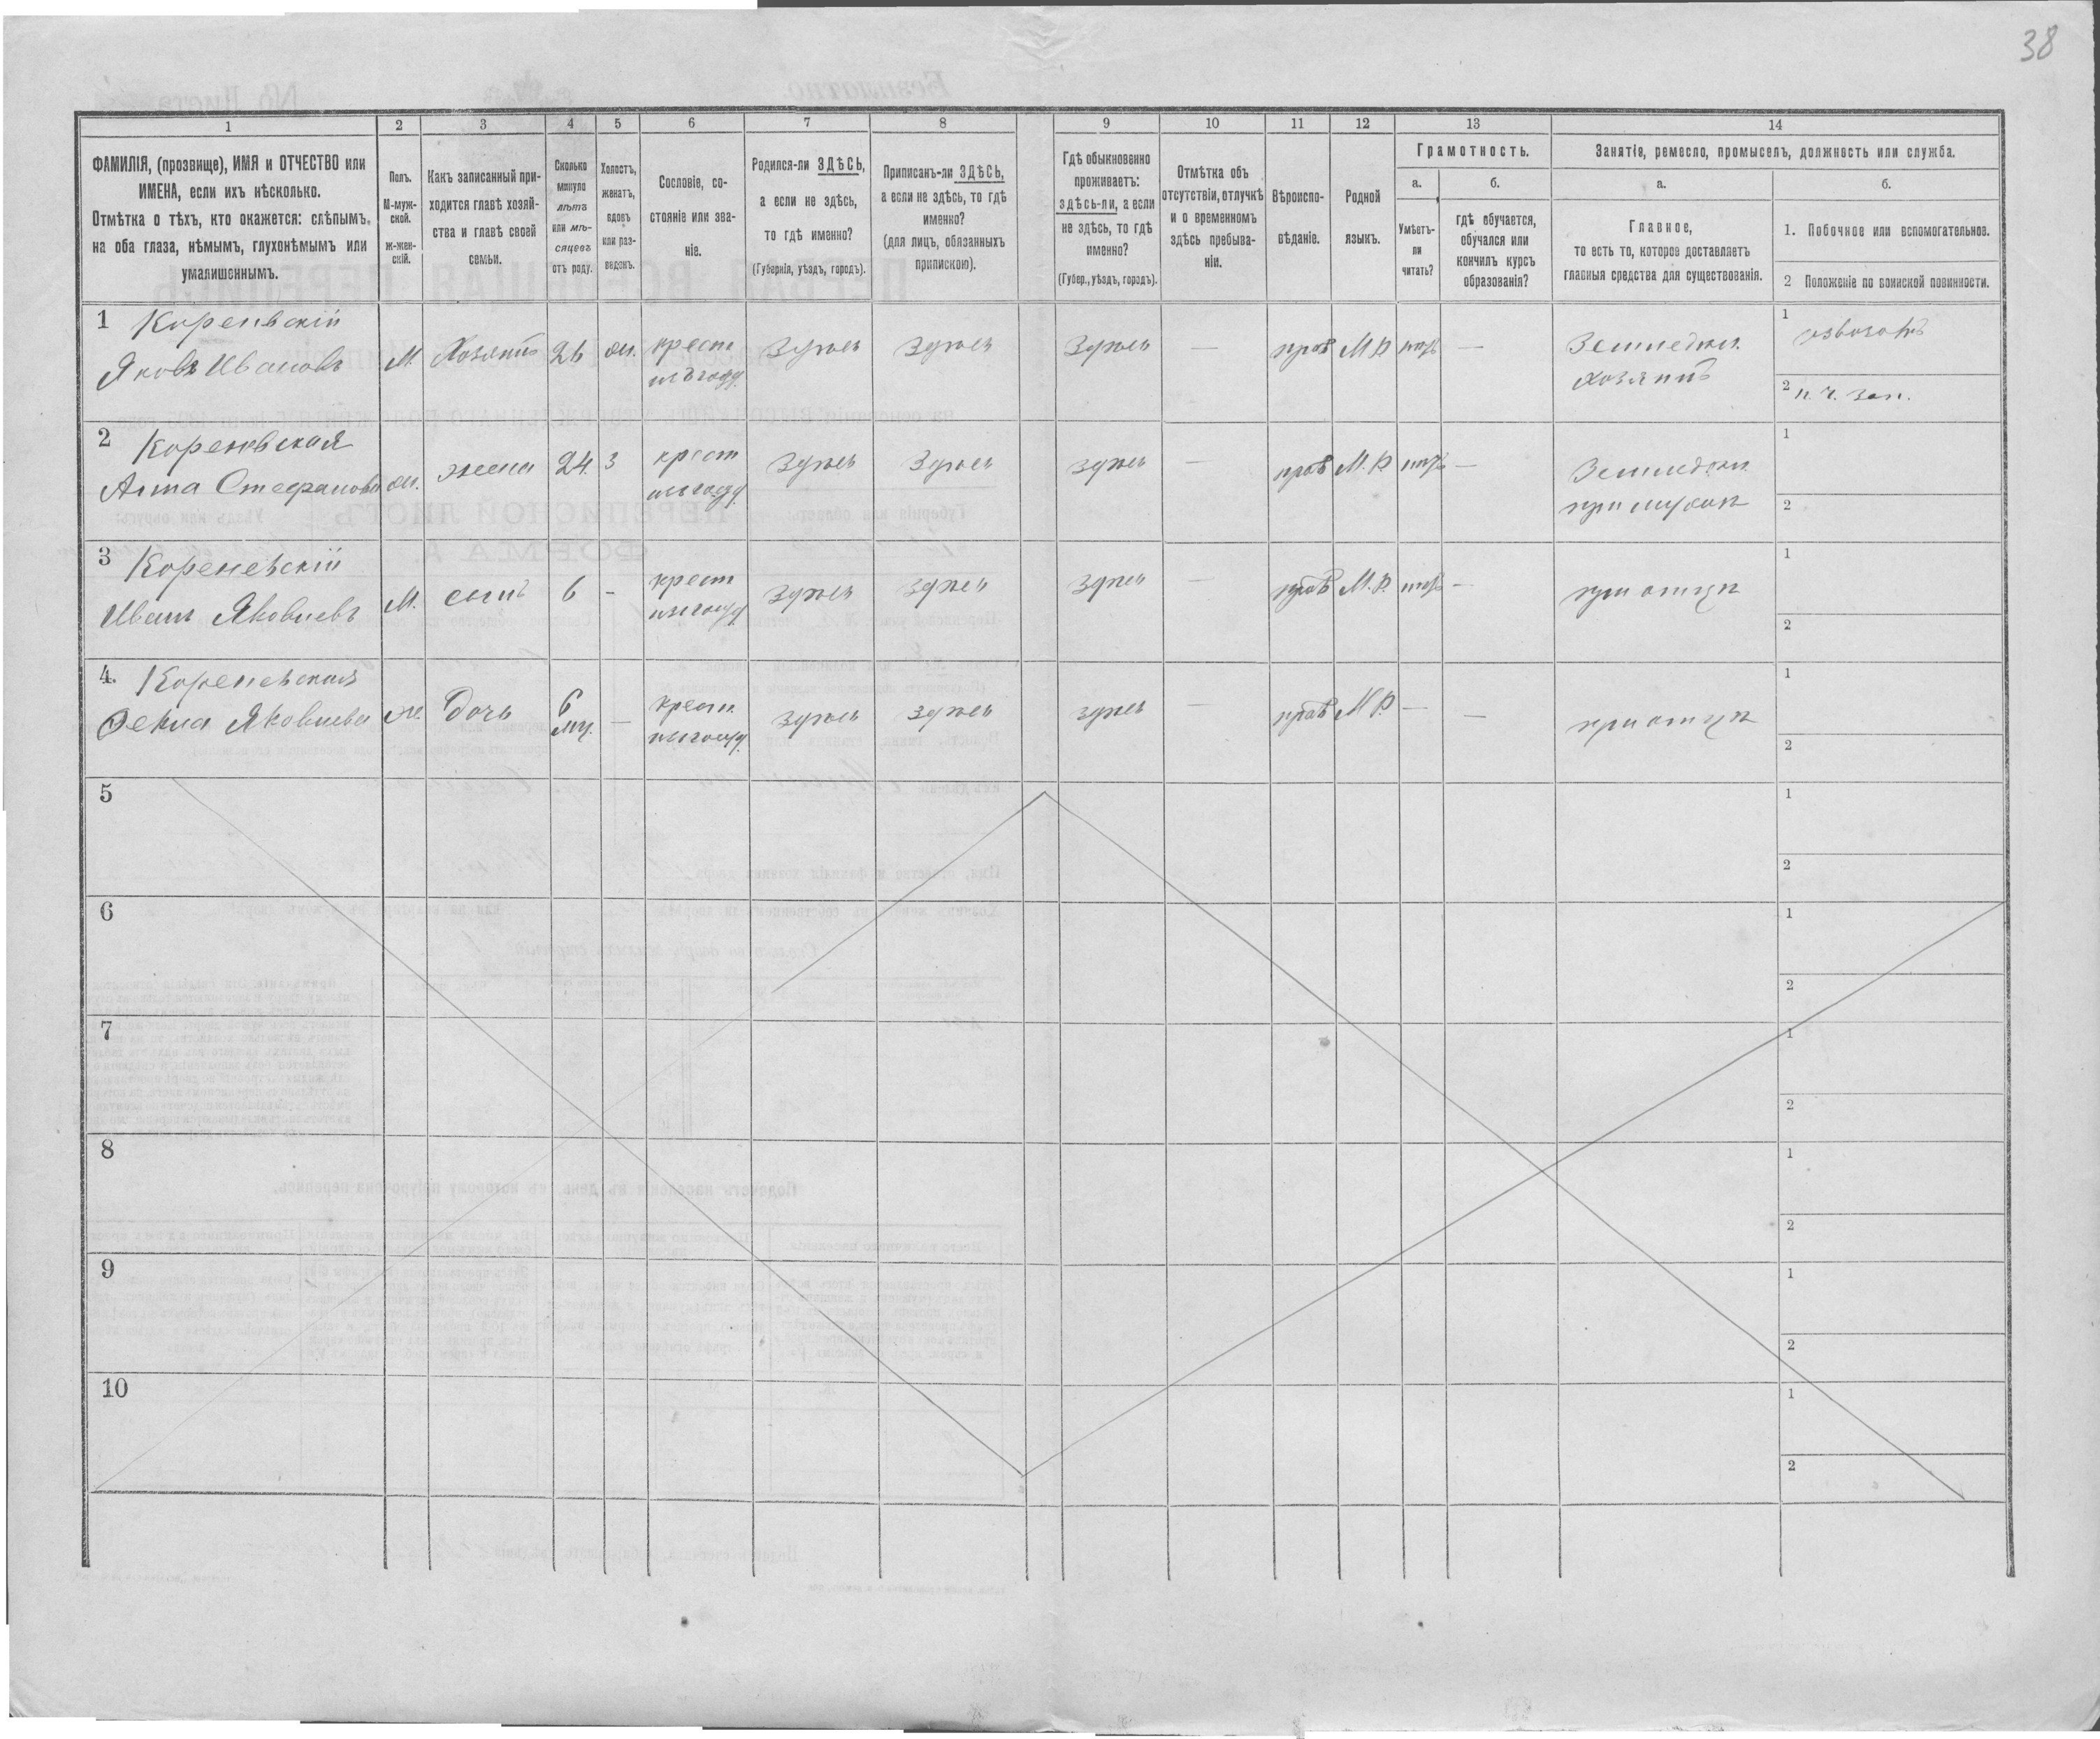 38
1
2
3
4
5
6
7
8
9
10
11
12
13
14
ФАМИЛІЯ, (прозвище), ИМЯ и ОТЧЕСТВО или
ИМЕНА, если ихъ нѣсколько.
Отмѣтка о тѣхъ, кто окажется: слѣпымъ
на оба глаза, нѣмымъ, глухонѣмымъ или
умалишеннымъ.
Полъ.
М-муж-
ской.
ж-жен-
скій.
Какъ записанный при-
ходится главѣ хозяй-
ства и главѣ своей
семьи.
Сколько
минуло
лѣтъ
или мѣ-
сяцевъ
отъ роду.
Холостъ,
женатъ,
вдовъ
или раз-
веденъ.
Сословіе, со-
стояніе или зва-
ніе.
Родился-ли ЗДѢСЬ,
а если не здѣсь,
то гдѣ именно?
(Губернія, уѣздъ, городъ).
Приписанъ-ли ЗДѢСЬ,
а если не здѣсь, то гдѣ
именно?
(для лицъ, обязанныхъ
припискою).
Гдѣ обыкновенно
проживаетъ:
здѣсь-ли, а если
не здѣсь, то гдѣ
именно?
(Губер., уѣздъ, городъ).
Отмѣтка объ
отсутствіи, отлучкѣ
и о временномъ
здѣсь пребыва-
ніи.
Вѣроиспо-
вѣданіе.
Родной
языкъ.
Грамотность.
а.
Умѣетъ-
ли
читать?
б.
гдѣ обучается,
обучался или
кончилъ курсъ
образованія?
Занятіе, ремесло, промыселъ, должность или служба.
а.
Главное,
то есть то, которое доставляетъ
главныя средства для существованія.
б.
1. Побочное или вспомогательное.
2 Положеніе по воинской повинности.
1 Коренвскій
Яковъ Ивановъ
М. Хозяинъ 26
крест
Здѣсь Здѣсь Здѣсь — прав М.Р —
Земледѣл.
хозяинъ
1
извозъ
2 н. ч. зап.
2 Кореневская
Анна Стефанова
жена 24 З
крест
Здѣсь Здѣсь здѣсь — прав М.Р —
Земледѣл.
при мужѣ
1
2
3 Кореневскій
Иванъ Яковлевъ
М. сынъ 6 -
крест
здѣсь здѣсь здѣсь — прав М.Р. —
при отцѣ
1
2
4. Кореневская
Ѳекла Яковлева
дочь 6
мц. —
крест
здѣсь здѣсь здѣсь — прав М.Р. — —
при отцѣ
1
2
5
1
2
6
1
2
7
1
2
8
1
2
9
1
2
10
1
2